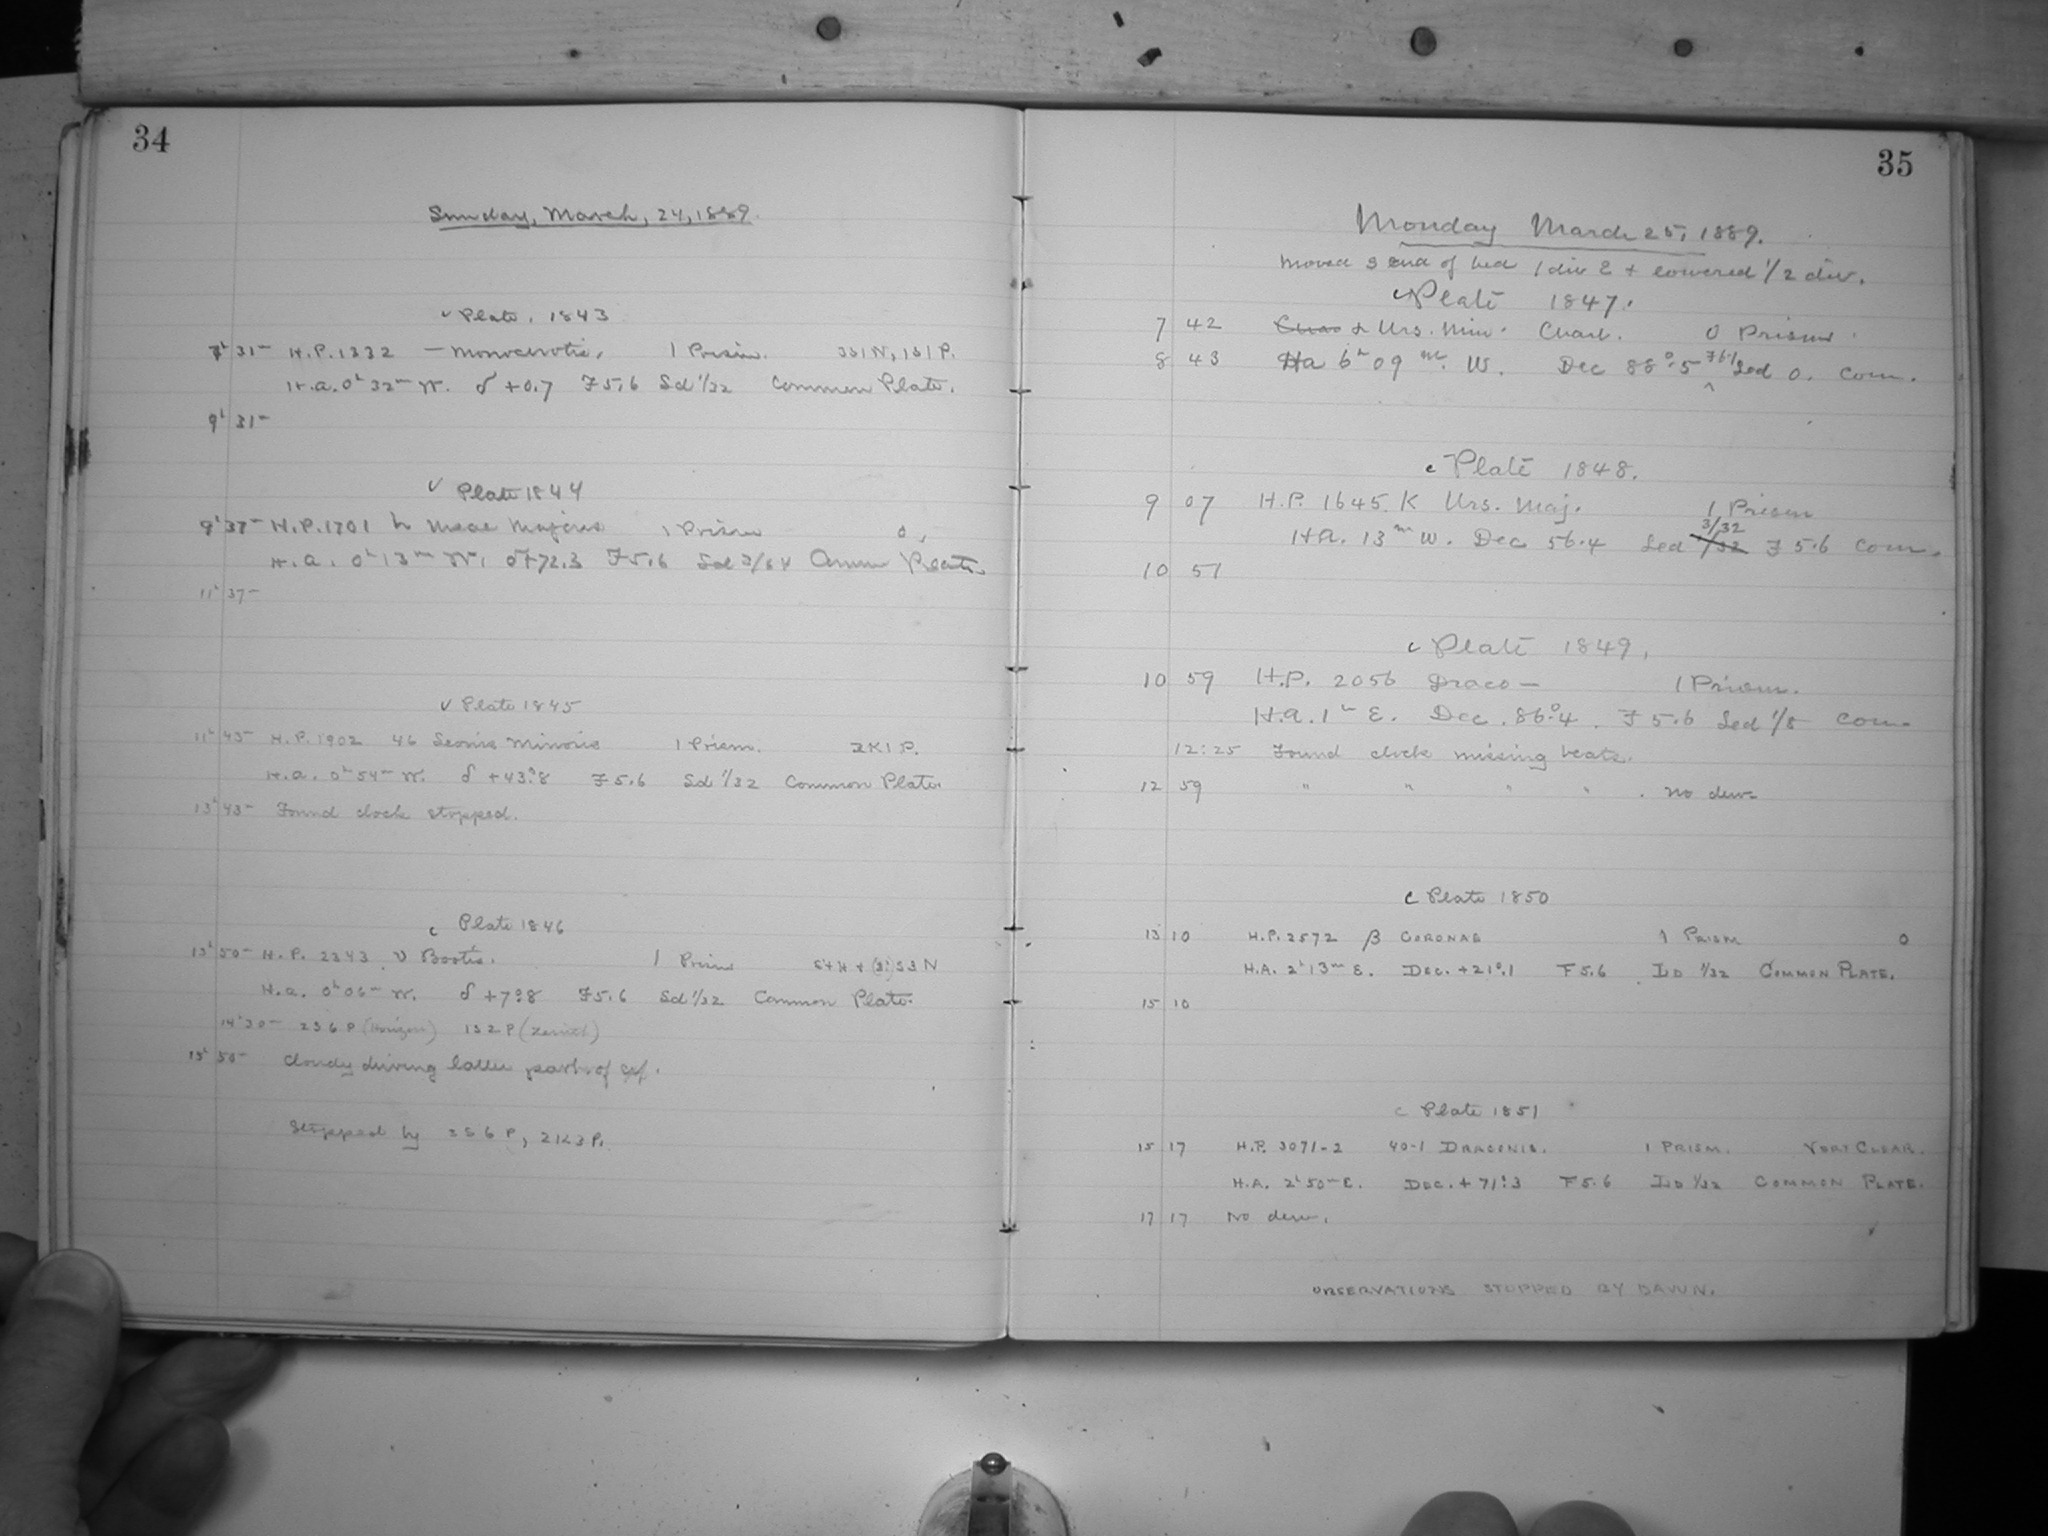 34
Sunday, March, 24, 1889.
Plate. 1843
7h 31m H.P. 1332 — Monocerotis, 1 Prism. 3S1N, 1S1P.
H.a. 0h 32m W. δ +0.7 F5.6 Sd 1/32 Common Plate.
9h 31m
Plate 1844
9h 37m H.P. 1701 h Ursae Majoris 1 Prism 0,
H.a. 0h 13m W. δ+72.3 F5.6 Sd 3/64 Common Plate.
11h 37m
Plate 1845
11h 45m H.P. 1902 46 Leonis Minoris 1 Prism. 2K1P.
H.a. 0h 54m W. δ +43°.8 F5.6 Sd 1/32 Common Plate.
13h 43m Found clock stopped.
c Plate 1846
13h 50m H.P. 2343 υ Bootis. 1 Prism
H.a. 0h 06m W. δ +7°.8 F5.6 Sd 1/32 Common Plate.
14h 30m 2S6P (Horizon) 1S2P (Zenith)
15h 50m Cloudy during latter part of
Stopped by 3S6P, 2K3P.
35
Monday March 25, 1889.
Moved S end of bed 1 div E + lowered 1/2 div.
c Plate 1847.
7 42 α Urs. Min. Chart. 0 Prism.
8 43 Ha 6h 09m. W. Dec 88°.5 Led 0. Com.
c Plate 1848.
9 07 H.P. 1645. K Urs. Maj. 1 Prism
3/32
Ha. 13m W. Dec 56.4 Led /32 F 5.6 Com.
10 57
c Plate 1849,
10 59 H.P. 2056 Draco — 1 Prism.
H.a. 1h E. Dec. 86°.4. F 5.6 Led 1/8 Com.
12:25 Found clock missing beats.
12 59 " " " " . No dew.
c Plate 1850
13 10 H.P. 2572 β CORONAE 1 PRISM 0
H.A. 2h 13m E. DEC. +21°.1 F 5.6 LD 1/32 COMMON PLATE.
15 10
c Plate 1851
15 17 H.P. 3071-2 40-1 DRACONIS. 1 PRISM. VERY CLEAR.
H.A. 2h 50m E. DEC. + 71°.3 F 5.6 LD 1/32 COMMON PLATE.
17 17 No dew.
OBSERVATIONS STOPPED BY DAWN.